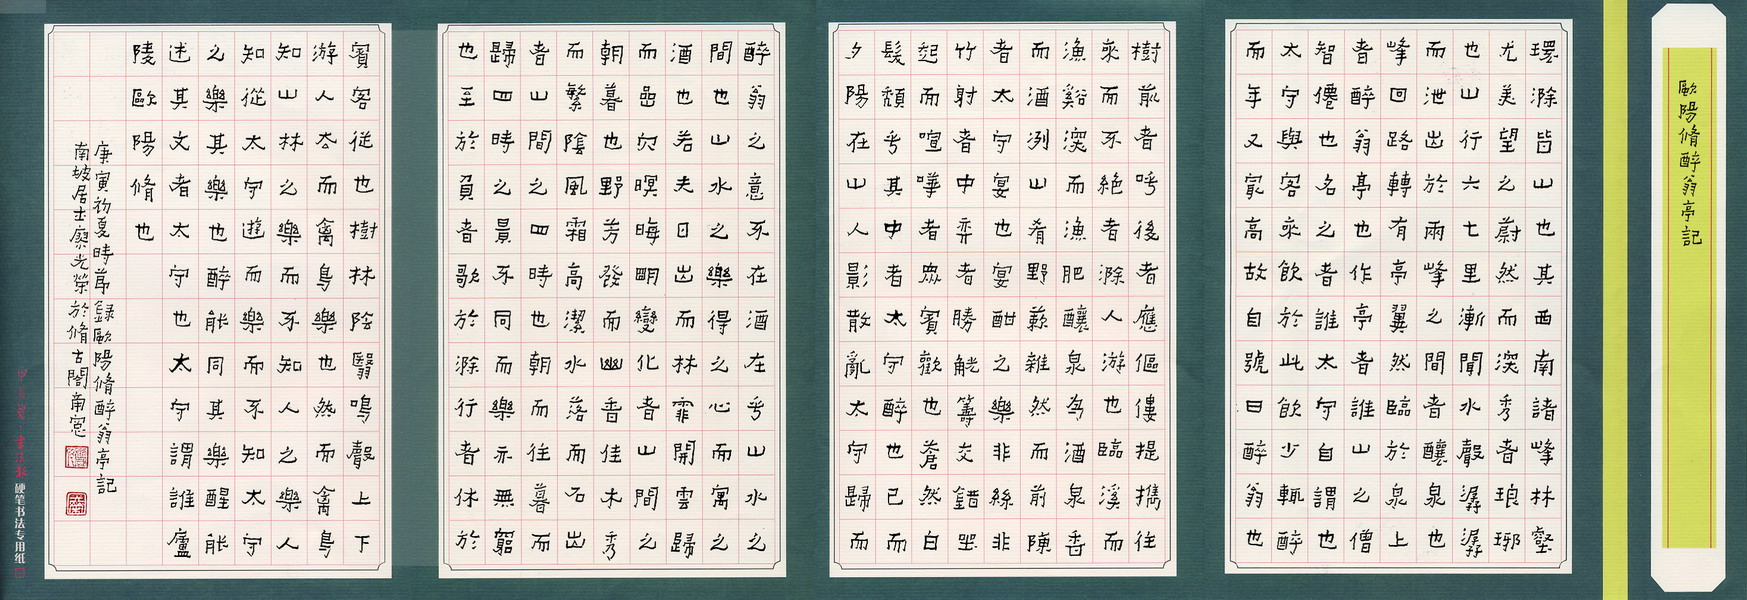 歐陽脩醉翁亭記
環滁皆山也其西南諸峰林壑
尤美望之蔚然而深秀者琅琊
也山行六七里漸聞水聲潺潺
而泄出於兩峰之間者釀泉也
峰回路轉有亭翼然臨於泉上
者醉翁亭也作亭者誰山之僧
智僊也名之者誰太守自謂也
太守與客來飲於此飲少輒醉
而年又最高故自號曰醉翁也
樹前者呼後者應傴僂提攜往
來而不絕者滁人游也臨溪而
漁谿深而漁肥釀泉為酒泉香
而酒冽山肴野蔌雜然而前陳
者太守宴也宴酣之樂非絲非
竹射者中弈者勝觥籌交錯坐
起而喧嘩者眾賓歡也蒼然白
髮頹乎其中者太守醉也已而
夕陽在山人影散亂太守歸而
醉翁之意不在酒在乎山水之
間也山水之樂得之心而寓之
酒也若夫日出而林霏開雲歸
而嵒穴暝晦明變化者山間之
朝暮也野芳發而幽香佳木秀
而繁陰風霜高潔水落而石出
者山間之四時也朝而往暮而
歸四時之景不同而樂亦無窮
也至於負者歌於滁行者休於
賓客從也樹林陰翳鳴聲上下
游人去而禽鳥樂也然而禽鳥
知山林之樂而不知人之樂人
知從太守遊而樂而不知太守
之樂其樂也醉能同其樂醒能
述其文者太守也太守謂誰廬
陵歐陽脩也
庚寅初夏時節錄歐陽脩醉翁亭記
南坡居士廖光榮於脩古閣南窗
硬笔书法专用纸